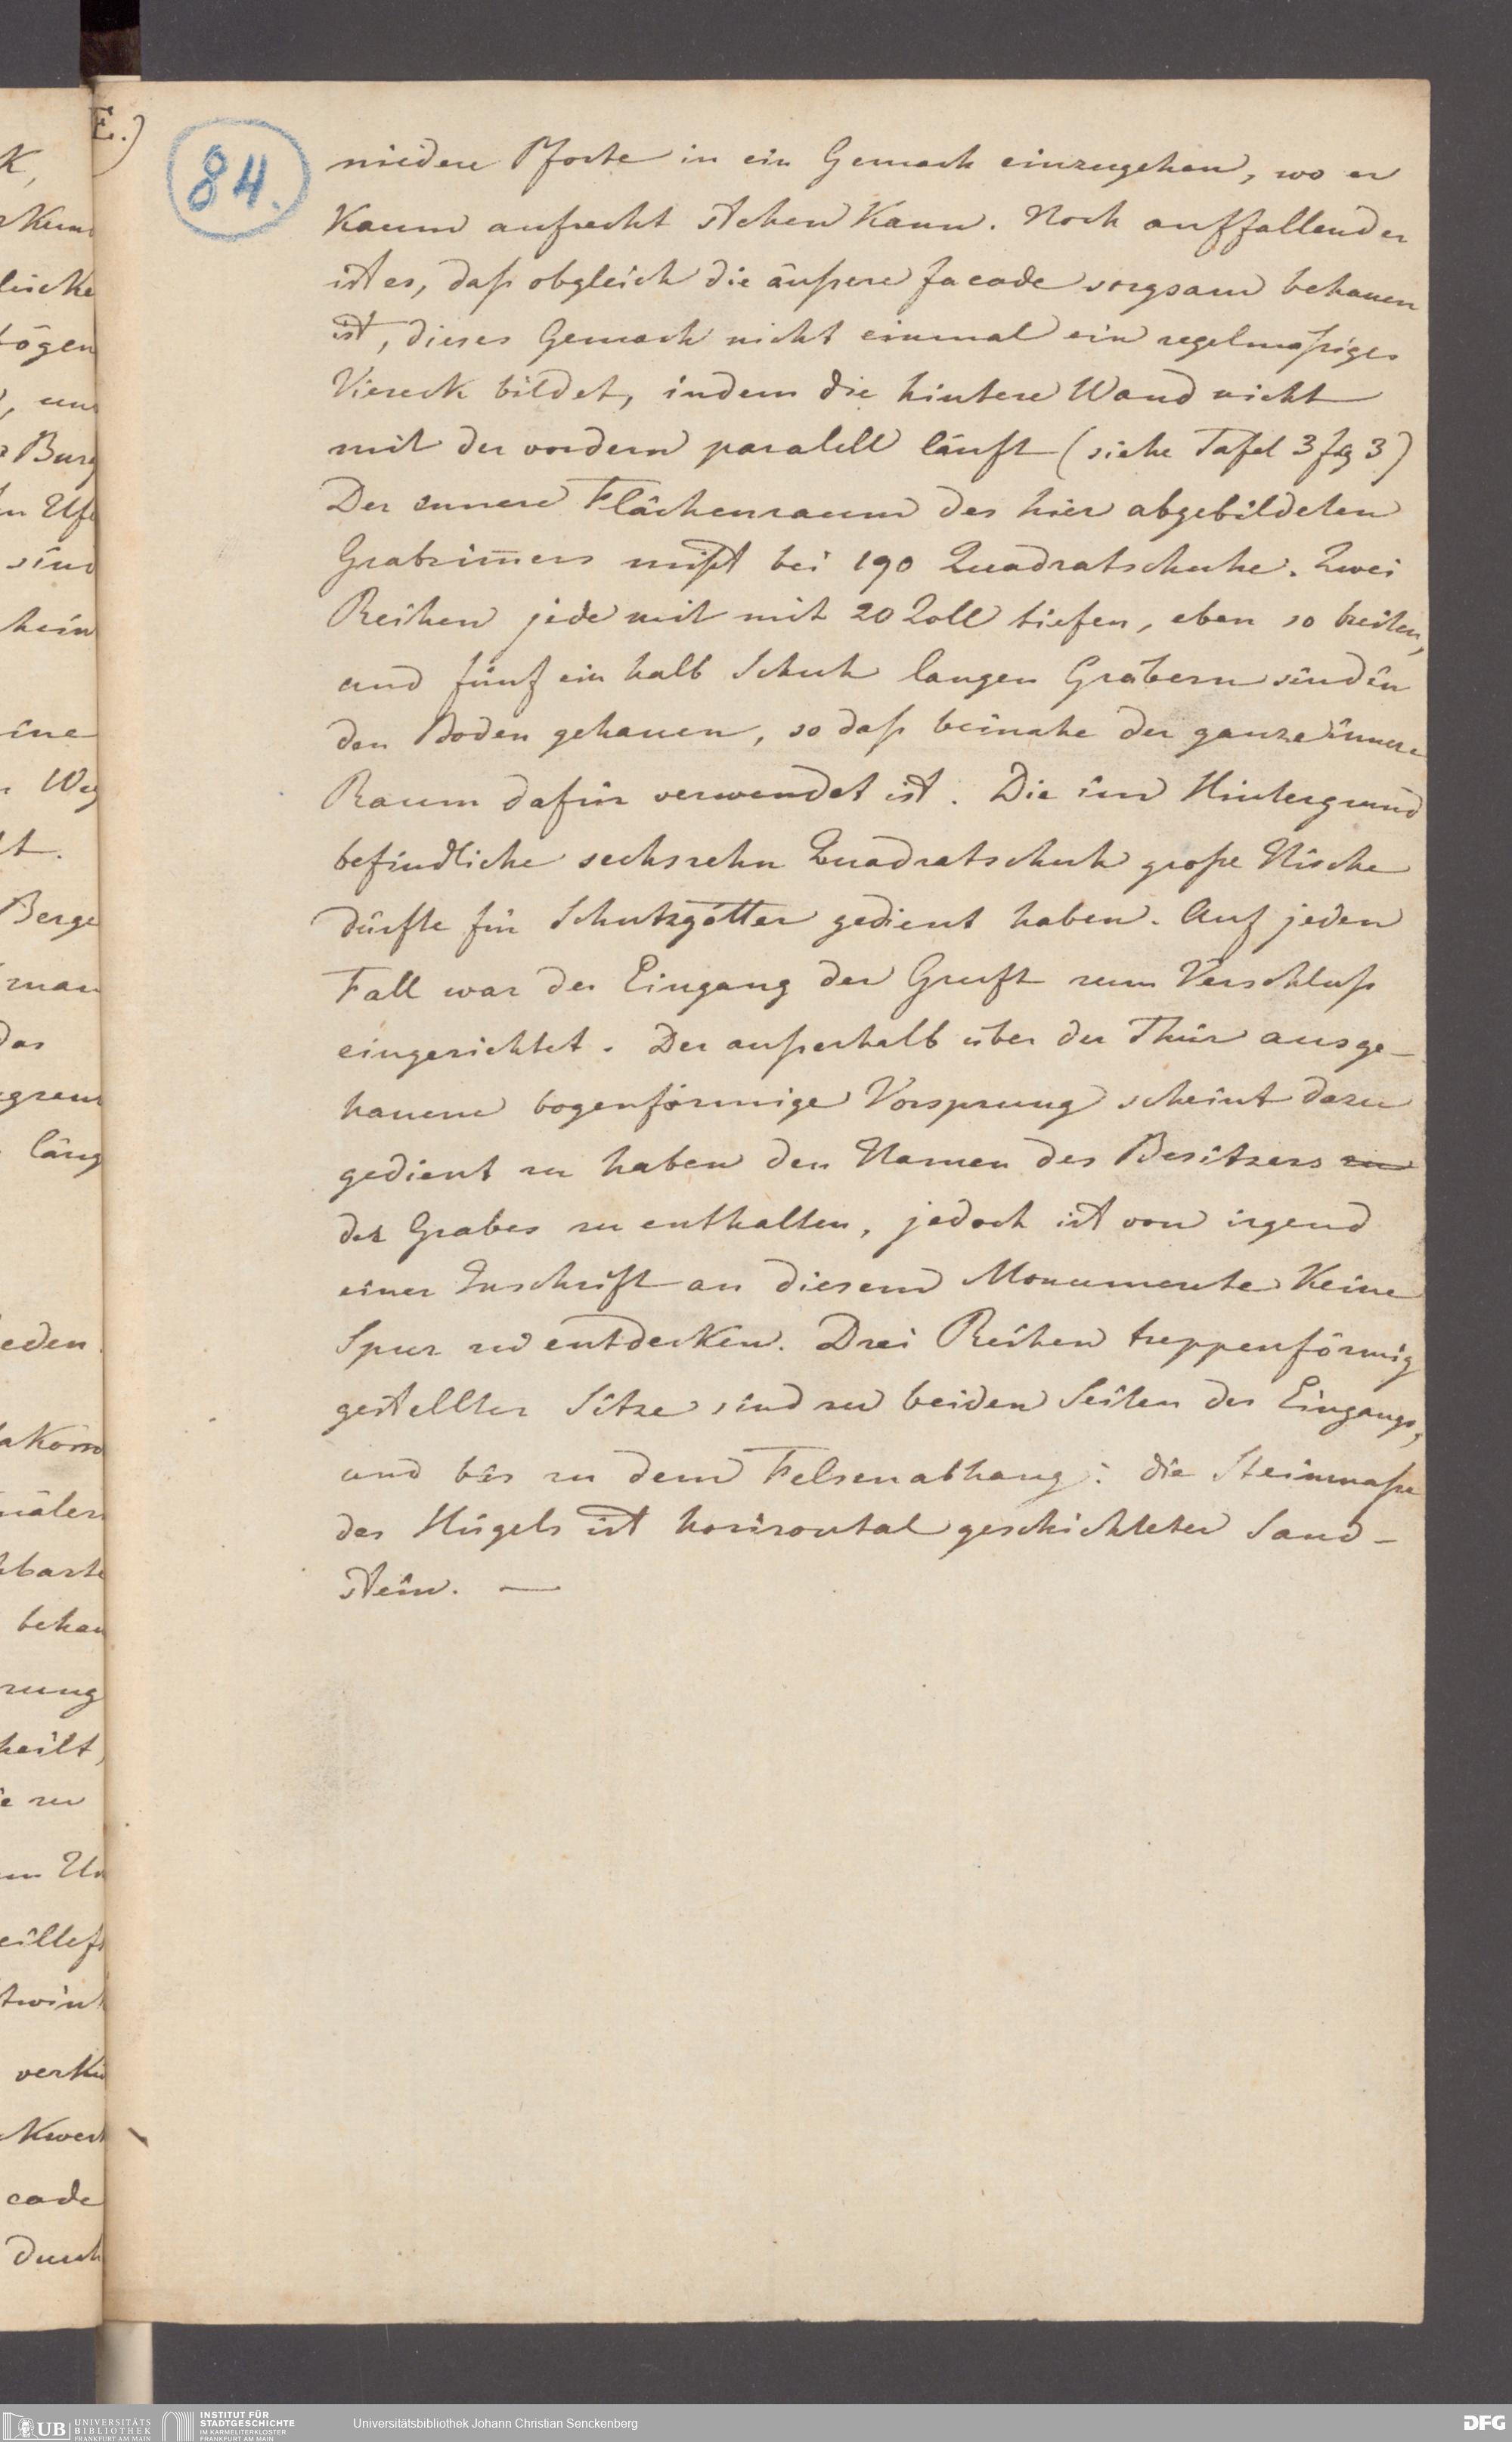 84.
niedere Pforte in ein Gemach einzugehen, wo er
kaum aufrecht stehen kann. Noch auffallender
ist es, daß obgleich die äußere facade sorgsam behauen
ist, dieses Gemach nicht einmal ein regelmäßiges
Viereck bildet, indem die hintere Wand nicht
mit der vordern paralell läuft (siehe Tafel 3 fg 3)
Der innere Flächenraum des hier abgebildeten
Grabzim̄ers mißt bei 190 Quadratschuhe. Zwei
Reihen jede mit mit 20 Zoll tiefen, eben so breiten,
und fünf ein halb Schuh langen Gräbern sind in
den Boden gehauen, so daß beinahe der ganze innere
Raum dafür verwendet ist. Die im Hintergrund
befindliche sechszehn Quadratschuh große Nische
dürfte für Schutzgötter gedient haben. Auf jeden
Fall war der Eingang der Gruft zum Verschluß
eingerichtet. Der außerhalb über der Thür ausge-
hauene bogenförmige Vorsprung scheint dazu
gedient zu haben den Namen des Besitzers zu
des Grabes zu enthalten, jedoch ist von irgend
einer Inschrift an diesem Monumente keine
Spur zu entdecken. Drei Reihen treppenförmig
gestellter Sitze sind zu beiden Seiten des Eingangs,
und bis zu dem Felsenabhang: die Steinmaße
des Hügels ist horizontal geschichteter Sand-
stein. —
UB UNIVERSITÄTS
BIBLIOTHEK
FRANKFURT AM MAIN
INSTITUT FÜR
STADTGESCHICHTE
IM KARMELITERKLOSTER
FRANKFURT AM MAIN
Universitätsbibliothek Johann Christian Senckenberg
DFG